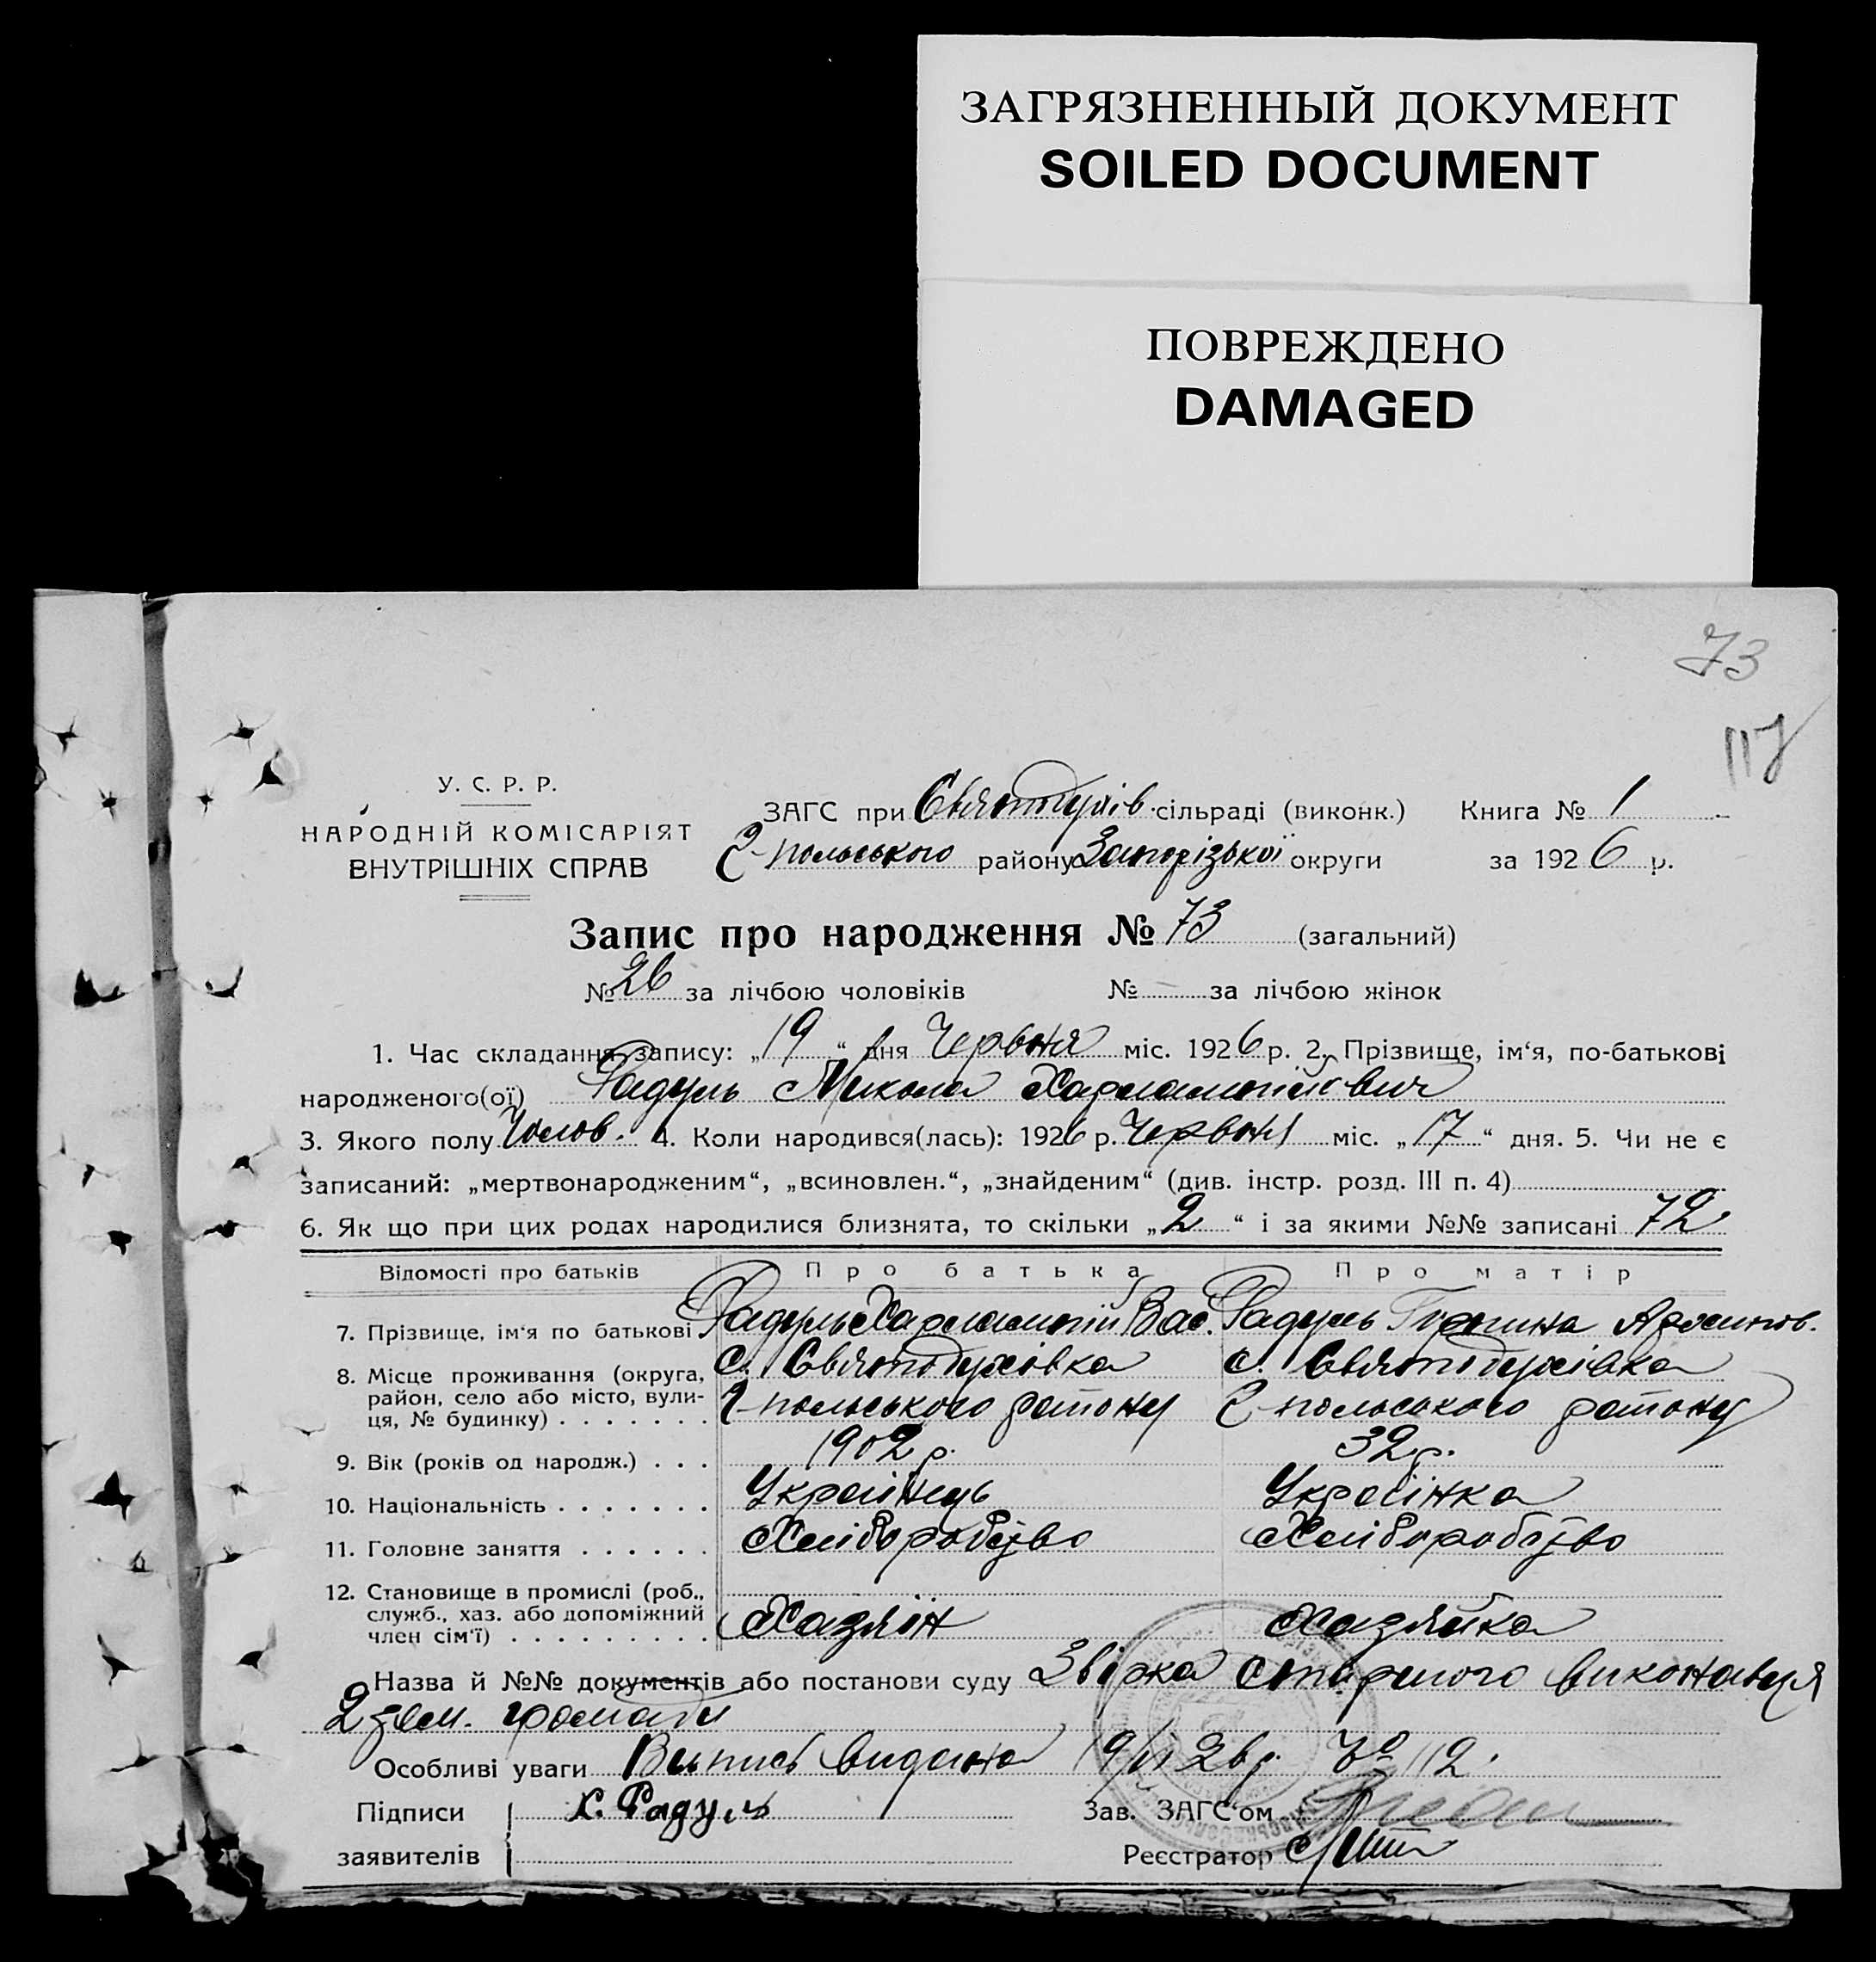 ЗАГРЯЗНЕННЫЙ ДОКУМЕНТ
SOILED DOCUMENT
ПОВРЕЖДЕНО
DAMAGED
73
117
У. С. Р. Р.
НАРОДНІЙ КОМІСАРІЯТ
ВНУТРІШНІХ СПРАВ
ЗАГС при Святодухів. сільраді (виконк.) Книга № 1
Г-польського району Запорізької округи за 1926 р.
Запис про народження № 73 (загальний)
№ 26 за лічбою чоловіків № — за лічбою жінок
1. Час складання запису: „19“ дня Червня міс. 1926 р. 2. Прізвище, ім‘я, по-батькові
народженого(ої) Радуль Микола Харлампійович
3. Якого полу Чолов. 4. Коли народився(лась): 1926 р. Червня міс. „17“ дня. 5. Чи не є
записаний: „мертвонародженим“, „всиновлен.“, „знайденим“ (див. інстр. розд. III п. 4)
6. Як що при цих родах народилися близнята, то скільки „2“ і за якими №№ записані 72
Відомості про батьків Про батька Про матір
7. Прізвище, ім‘я по батькові Радуль Харлампій Вас. Радуль Горпина
8. Місце проживання (округа, с. Святодухівка с. Святодухівка
район, село або місто, вули- Г-польського району Г-польського району
ця, № будинку)
9. Вік (років од народж.) 1902 р. 32 р.
10. Національність Українець Українка
11. Головне заняття Хліборобство Хліборобство
12. Становище в промислі (роб.,
служб., хаз. або допоміжний
член сім‘ї) Хазяїн Хазяйка
Назва й №№ документів або постанови суду Звірка старшого виконавця
2 зем. громади
Особливі уваги Випись видана 19/VI 26 р. № 112.
Підписи Х. Радуль Зав. ЗАГС‘ом
заявителів Реєстратор